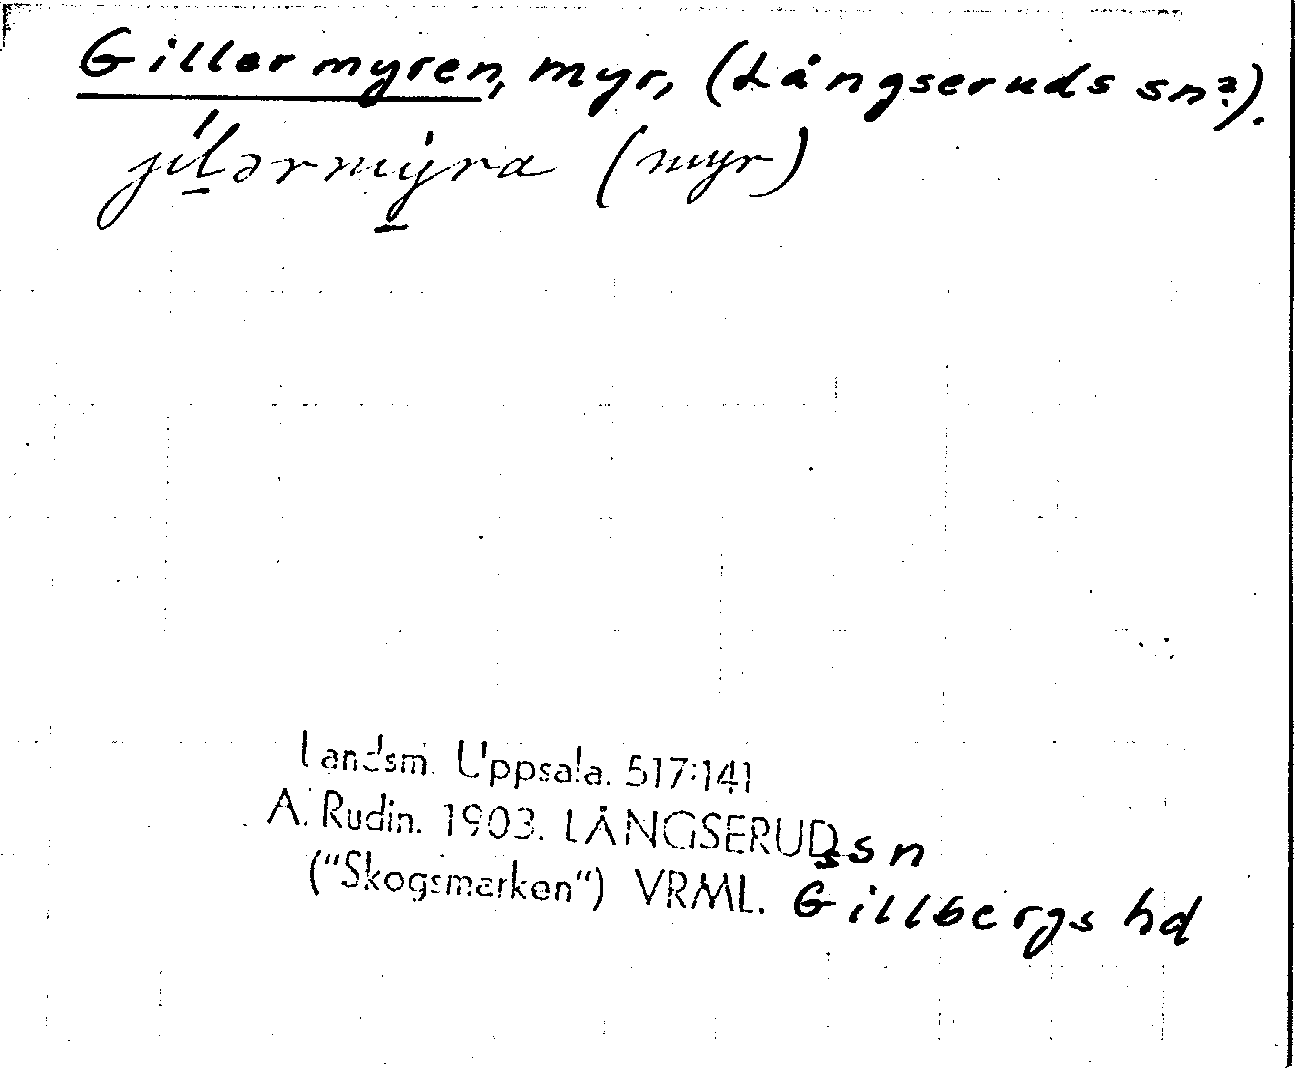 Gillermyren, myr, (Långseruds sn?).
jílərmýra (myr)
Landsm. Uppsala. 517:141
A. Rudin. 1903. LÅNGSERUDs sn
("Skogsmarken") VRML. Gillbergs hd